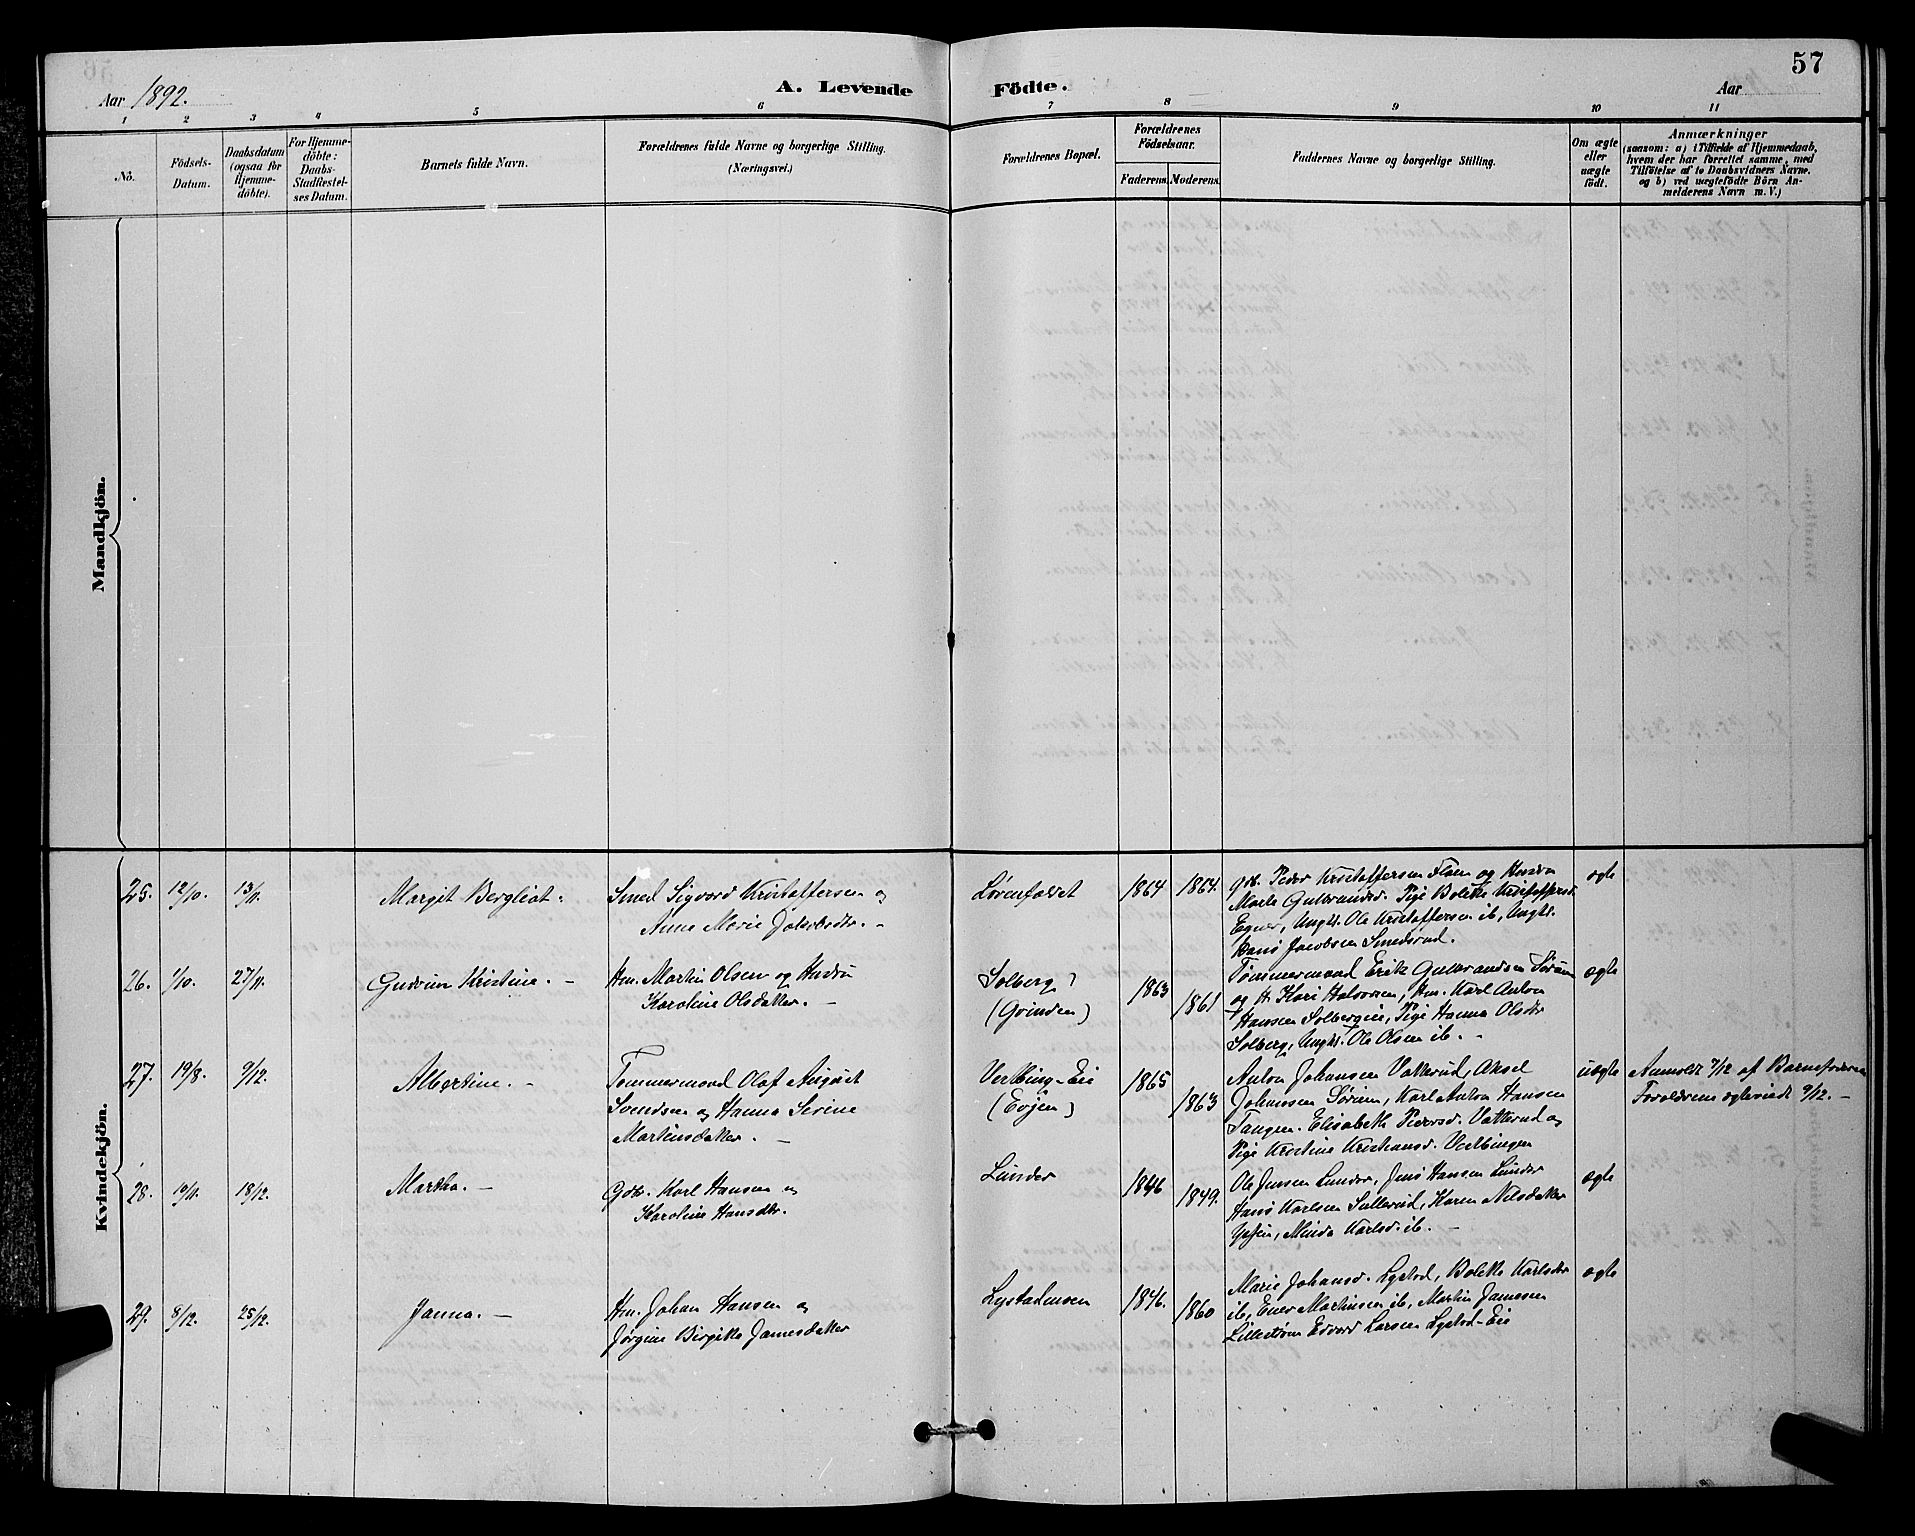 57
Aar 1892.
A. Levende Födte.
Aar
1 2 3 4 5 6 7 8 9 10 11
No.
Födsels-
Datum.
Daabsdatum
(ogsaa for
Hjemme-
döbte).
For Hjemme-
döbte:
Daabs-
Stadfæstel-
ses Datum.
Barnets fulde Navn.
Forældrenes fulde Navne og borgerlige Stilling.
(Næringsvei.)
Forældrenes Bopæl.
Forældrenes
Födselsaar.
Faderens. Moderens.
Faddernes Navne og borgerlige Stilling.
Om ægte
eller
uægte
födt.
Anmærkninger
(saasom: a) i Tilfælde af Hjemmedaab,
hvem der har forrettet samme, med
Tilföielse af to Daabsvidners Navne,
og b) ved uægtefödte Börn An-
melderens Navn m. V.)
Mandkjön.
Kvindekjön.
25. 12/10. 13/11. Margit Bergliot. Smed Sigvard Kristoffersen og
Anne Marie Jakobsdtr.
Lørenfaldet 1864 1864.
Gbr. Peder Kristoffersen Floen og Hustru
Marte Gulbrandsd. Pige Bolette Kristoffersd.
Egner, Ungkl. Ole Kristoffersen ib, Ungkl.
Hans Jacobsen Smedsrud.
ægte
26. 1/10. 27/11. Gudrun Kristine. Hm. Martin Olsen og Hustru
Karoline Olsdatter.
Solberg
(Grinden) 1863 1861
Tømmermand Erik Gulbrandsen Sørum
og H. Kari Halvorsen, Hm. Karl Anton
Hansen Solbergeie, Pige Hanna Olsdtr
Solberg, Ungkl. Ole Olsen ib.
ægte
27. 19/8. 9/12. Albertine. Tømmermand Olaf August
Svendsen og Hanna Serine
Martinsdatter.
Vestbing-Eie
(Evjen) 1865 1863
Anton Johansen Vatterud, Aksel
Johansen Sørum, Karl Anton Hansen
Tangen. Elisabeth Pedersd. Vatterud og
Pige Kristine Kristiansd.
uægte
Anmeldt 7/12 af Barnefaderen
Forældrene ægteviede 9/12.
28. 19/11. 18/12. Martha. Gbr. Karl Hansen og
Karoline Hansdtr.
Lunder 1846 1849.
Ole Jensen Lunder, Jens Hansen Lunder
Hans Karlsen Sullerud, Karen Nilsdatter
Minda Karlsd. ib.
ægte
29. 8/12. 25/12. Janna. Hm. Johan Hansen og
Jørgine Birgitte Jamesdatter
Lystadmoen 1846. 1860
Marie Johansd. Lystad, Bolette Karlsdtr
ib, Enev Martinsen ib, Martin Jamessen
Lillestrøm Edvard Larsen Lystad-Eie
ægte